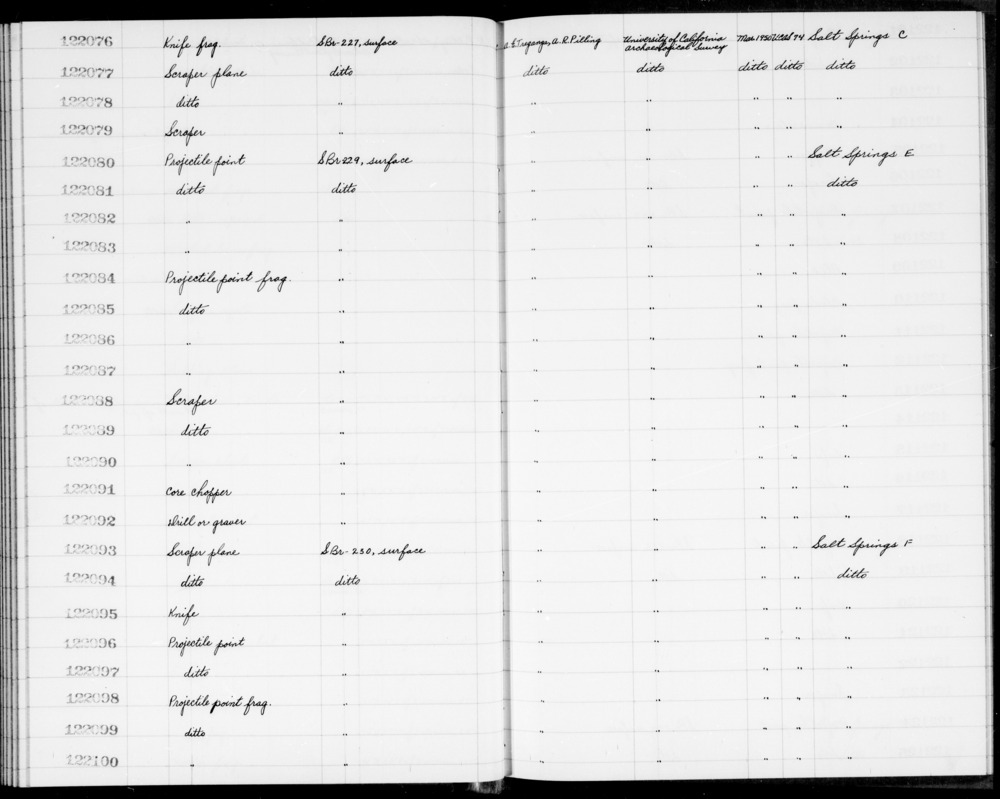 122076 Knife frag. SBr-227, surface A.E. Treganza, A.R. Pilling University of California archaeological Survey Mar. 1950 UCAS 74 Salt Springs C
122077 Scraper plane ditto ditto ditto ditto ditto ditto
122078 ditto " " " " " "
122079 Scraper " " " " " "
122080 Projectile point SBr 229, surface " " " " Salt Springs E
122081 ditto ditto " " " " ditto
122082 " " " " " " "
122083 " " " " " " "
122084 Projectile point frag. " " " " " "
122085 ditto " " " " " "
122086 " " " " " " "
122087 " " " " " " "
122088 Scraper " " " " " "
122089 ditto " " " " " "
122090 " " " " " " "
122091 Core chopper " " " " " "
122092 Drill or graver " " " " " "
122093 Scraper plane SBr-230, surface " " " " Salt Springs F
122094 ditto ditto " " " " ditto
122095 Knife " " " " " "
122096 Projectile point " " " " " "
122097 ditto " " " " " "
122098 Projectile point frag. " " " " " "
122099 ditto " " " " " "
122100 " " " " " " "